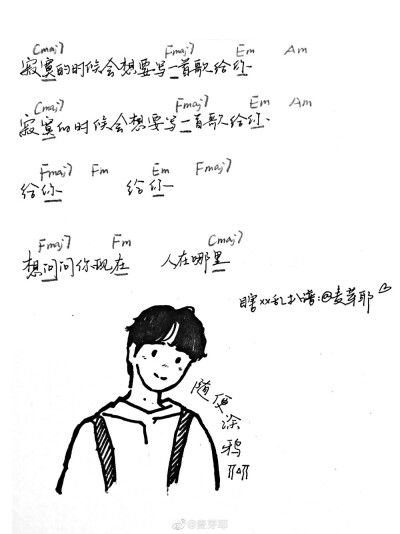 Cmaj7 Fmaj7 Em Am
寂寞的时候会想要写一首歌给你
Cmaj7 Fmaj7 Em Am
寂寞的时候会想要写一首歌给你
Fmaj7 Fm Em Fmaj7
给你 给你
Fmaj7 Fm Cmaj7
想问问你现在 人在哪里
瞎xx乱扒谱:@麦芽耶
随便涂鸦
@麦芽耶